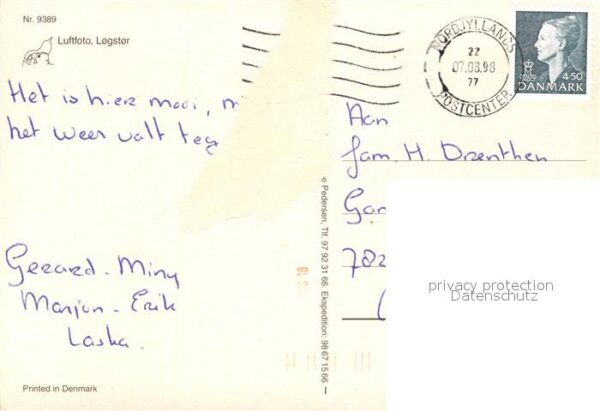 Nr. 9389
Luftfoto, Løgstør
NORDJYLLANDS
22
07.08.98
77
POSTCENTER
4.50
DANMARK
Het is hier mooi,
het weer valt teg
Gerard. Miny
Marjon. Erik
Laska.
Aan
Fam. H. Drenthen
Gar
782
e Pedersen, Tlf. 97 92 31 66. Ekspedition: 98 67 15 66
Printed in Denmark
privacy protection
Datenschutz